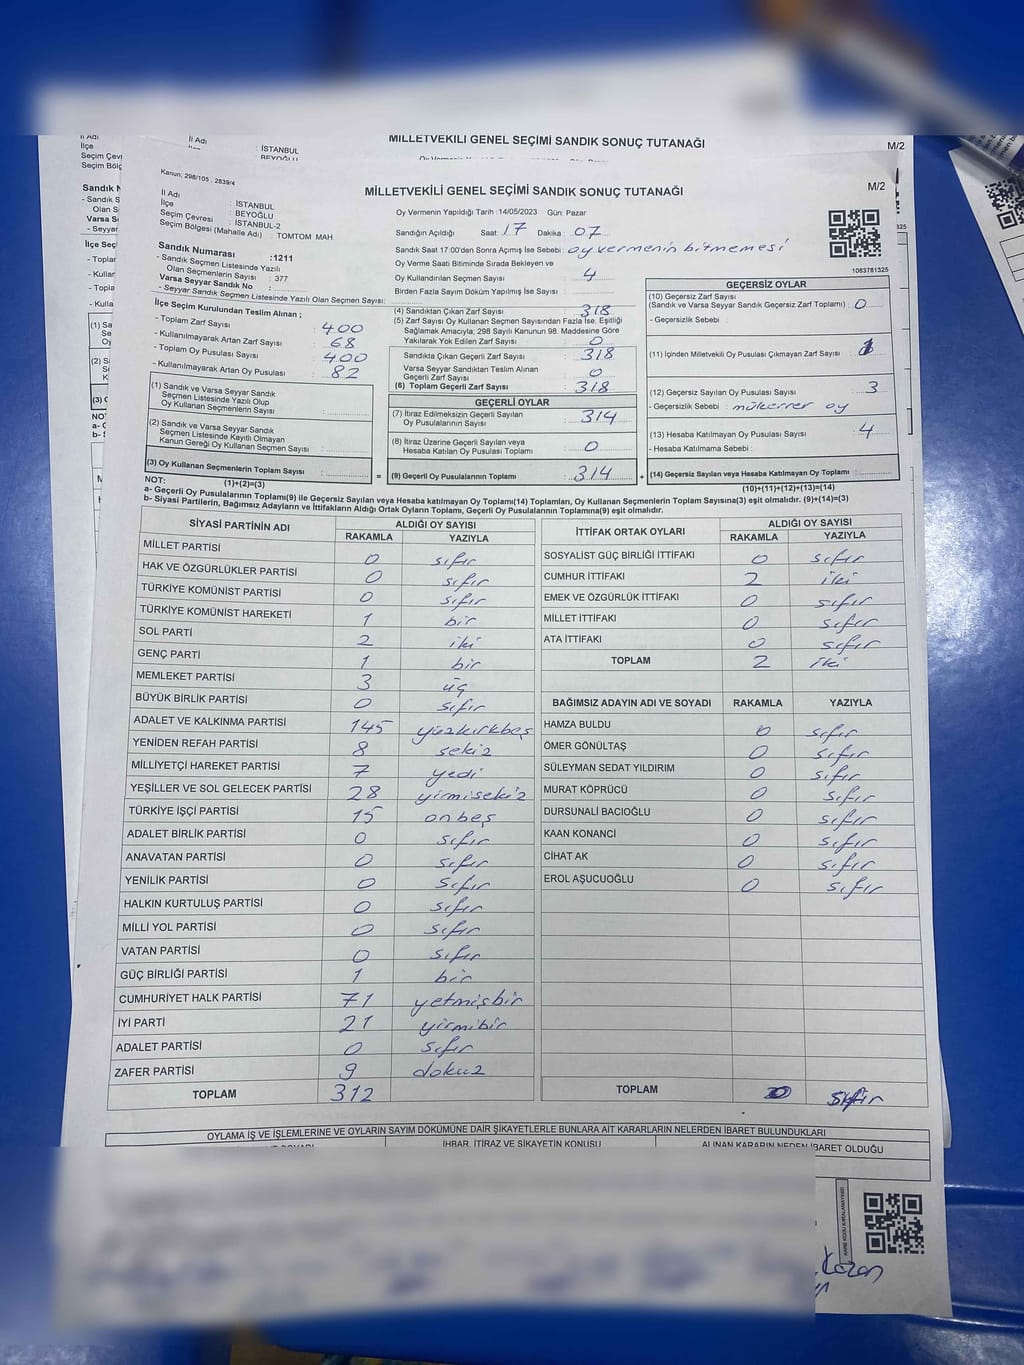 İl Adı
İlçe
Seçim Çevr
Seçim Bölg
İl Adı : İSTANBUL
MİLLETVEKİLİ GENEL SEÇİMİ SANDIK SONUÇ TUTANAĞI
M/2
Kanun: 298/105 , 2839/4
MİLLETVEKİLİ GENEL SEÇİMİ SANDIK SONUÇ TUTANAĞI
M/2
İl Adı : İSTANBUL
İlçe : BEYOĞLU
Seçim Çevresi : İSTANBUL-2
Seçim Bölgesi (Mahalle Adı) : TOMTOM MAH
Sandık Numarası :1211
- Sandık Seçmen Listesinde Yazılı
Olan Seçmenlerin Sayısı : 377
Varsa Seyyar Sandık No :
- Seyyar Sandık Seçmen Listesinde Yazılı Olan Seçmen Sayısı:
İlçe Seçim Kurulundan Teslim Alınan ;
- Toplam Zarf Sayısı : 400
- Kullanılmayarak Artan Zarf Sayısı : 68
- Toplam Oy Pusulası Sayısı : 400
- Kullanılmayarak Artan Oy Pusulası : 82
(1) Sandık ve Varsa Seyyar Sandık
Seçmen Listesinde Yazılı Olup
Oy Kullanan Seçmenlerin Sayısı :
(2) Sandık ve Varsa Seyyar Sandık
Seçmen Listesinde Kayıtlı Olmayan
Kanun Gereği Oy Kullanan Seçmen Sayısı :
(3) Oy Kullanan Seçmenlerin Toplam Sayısı :
Oy Vermenin Yapıldığı Tarih :14/05/2023 Gün: Pazar
Sandığın Açıldığı Saat: 17 Dakika : 07
Sandık Saat 17:00'den Sonra Açımış İse Sebebi : oy vermenin bitmemesi
Oy Verme Saati Bitiminde Sırada Bekleyen ve
Oy Kullandırılan Seçmen Sayısı : 4
Birden Fazla Sayım Döküm Yapılmış İse Sayısı :
(4) Sandıktan Çıkan Zarf Sayısı : 318
(5) Zarf Sayısı Oy Kullanan Seçmen Sayısından Fazla İse, Eşitliği
Sağlamak Amacıyla; 298 Sayılı Kanunun 98. Maddesine Göre
Yakılarak Yok Edilen Zarf Sayısı : 0
Sandıkta Çıkan Geçerli Zarf Sayısı : 318
Varsa Seyyar Sandıktan Teslim Alınan
Geçerli Zarf Sayısı : 0
(6) Toplam Geçerli Zarf Sayısı : 318
GEÇERLİ OYLAR
(7) İtiraz Edilmeksizin Geçerli Sayılan
Oy Pusulalarının Sayısı : 314
(8) İtiraz Üzerine Geçerli Sayılan veya
Hesaba Katılan Oy Pusulaları Toplamı : 0
= (9) Geçerli Oy Pusulalarının Toplamı : 314
1083781325
GEÇERSİZ OYLAR
(10) Geçersiz Zarf Sayısı
(Sandık ve Varsa Seyyar Sandık Geçersiz Zarf Toplamı) : 0
- Geçersizlik Sebebi :
(11) İçinden Milletvekili Oy Pusulası Çıkmayan Zarf Sayısı : 1
(12) Geçersiz Sayılan Oy Pusulası Sayısı : 3
- Geçersizlik Sebebi : mükerrer oy
(13) Hesaba Katılmayan Oy Pusulası Sayısı : 4
- Hesaba Katılmama Sebebi :
+ (14) Geçersiz Sayılan veya Hesaba Katılmayan Oy Toplamı :
NOT: (1)+(2)=(3) (10)+(11)+(12)+(13)=(14)
a- Geçerli Oy Pusulalarının Toplamı(9) ile Geçersiz Sayılan veya Hesaba katılmayan Oy Toplamı(14) Toplamları, Oy Kullanan Seçmenlerin Toplam Sayısına(3) eşit olmalıdır. (9)+(14)=(3)
b- Siyasi Partilerin, Bağımsız Adayların ve İttifakların Aldığı Oyların Toplamı, Geçerli Oy Pusulalarının Toplamına(9) eşit olmalıdır.
SİYASİ PARTİNİN ADI ALDIĞI OY SAYISI
RAKAMLA YAZIYLA
MİLLET PARTİSİ 0 sıfır
HAK VE ÖZGÜRLÜKLER PARTİSİ 0 sıfır
TÜRKİYE KOMÜNİST PARTİSİ 0 sıfır
TÜRKİYE KOMÜNİST HAREKETİ 1 bir
SOL PARTİ 2 iki
GENÇ PARTİ 1 bir
MEMLEKET PARTİSİ 3 üç
BÜYÜK BİRLİK PARTİSİ 0 sıfır
ADALET VE KALKINMA PARTİSİ 145 yüzkırkbeş
YENİDEN REFAH PARTİSİ 8 sekiz
MİLLİYETÇİ HAREKET PARTİSİ 7 yedi
YEŞİLLER VE SOL GELECEK PARTİSİ 28 yirmisekiz
TÜRKİYE İŞÇİ PARTİSİ 15 onbeş
ADALET BİRLİK PARTİSİ 0 sıfır
ANAVATAN PARTİSİ 0 sıfır
YENİLİK PARTİSİ 0 sıfır
HALKIN KURTULUŞ PARTİSİ 0 sıfır
MİLLİ YOL PARTİSİ 0 sıfır
VATAN PARTİSİ 0 sıfır
GÜÇ BİRLİĞİ PARTİSİ 1 bir
CUMHURİYET HALK PARTİSİ 71 yetmişbir
İYİ PARTİ 21 yirmibir
ADALET PARTİSİ 0 sıfır
ZAFER PARTİSİ 9 dokuz
TOPLAM 312
İTTİFAK ORTAK OYLARI ALDIĞI OY SAYISI
RAKAMLA YAZIYLA
SOSYALİST GÜÇ BİRLİĞİ İTTİFAKI 0 sıfır
CUMHUR İTTİFAKI 2 iki
EMEK VE ÖZGÜRLÜK İTTİFAKI 0 sıfır
MİLLET İTTİFAKI 0 sıfır
ATA İTTİFAKI 0 sıfır
TOPLAM 2 iki
BAĞIMSIZ ADAYIN ADI VE SOYADI RAKAMLA YAZIYLA
HAMZA BULDU 0 sıfır
ÖMER GÖNÜLTAŞ 0 sıfır
SÜLEYMAN SEDAT YILDIRIM 0 sıfır
MURAT KÖPRÜCÜ 0 sıfır
DURSUNALİ BACIOĞLU 0 sıfır
KAAN KONANCİ 0 sıfır
CİHAT AK 0 sıfır
EROL AŞUCUOĞLU 0 sıfır
TOPLAM 0 sıfır
OYLAMA İŞ VE İŞLEMLERİNE VE OYLARIN SAYIM DÖKÜMÜNE DAİR ŞİKAYETLERLE BUNLARA AİT KARARLARIN NELERDEN İBARET BULUNDUKLARI
İHBAR, İTİRAZ VE ŞİKAYETİN KONUSU ALINAN KARARIN NEDEN İBARET OLDUĞU